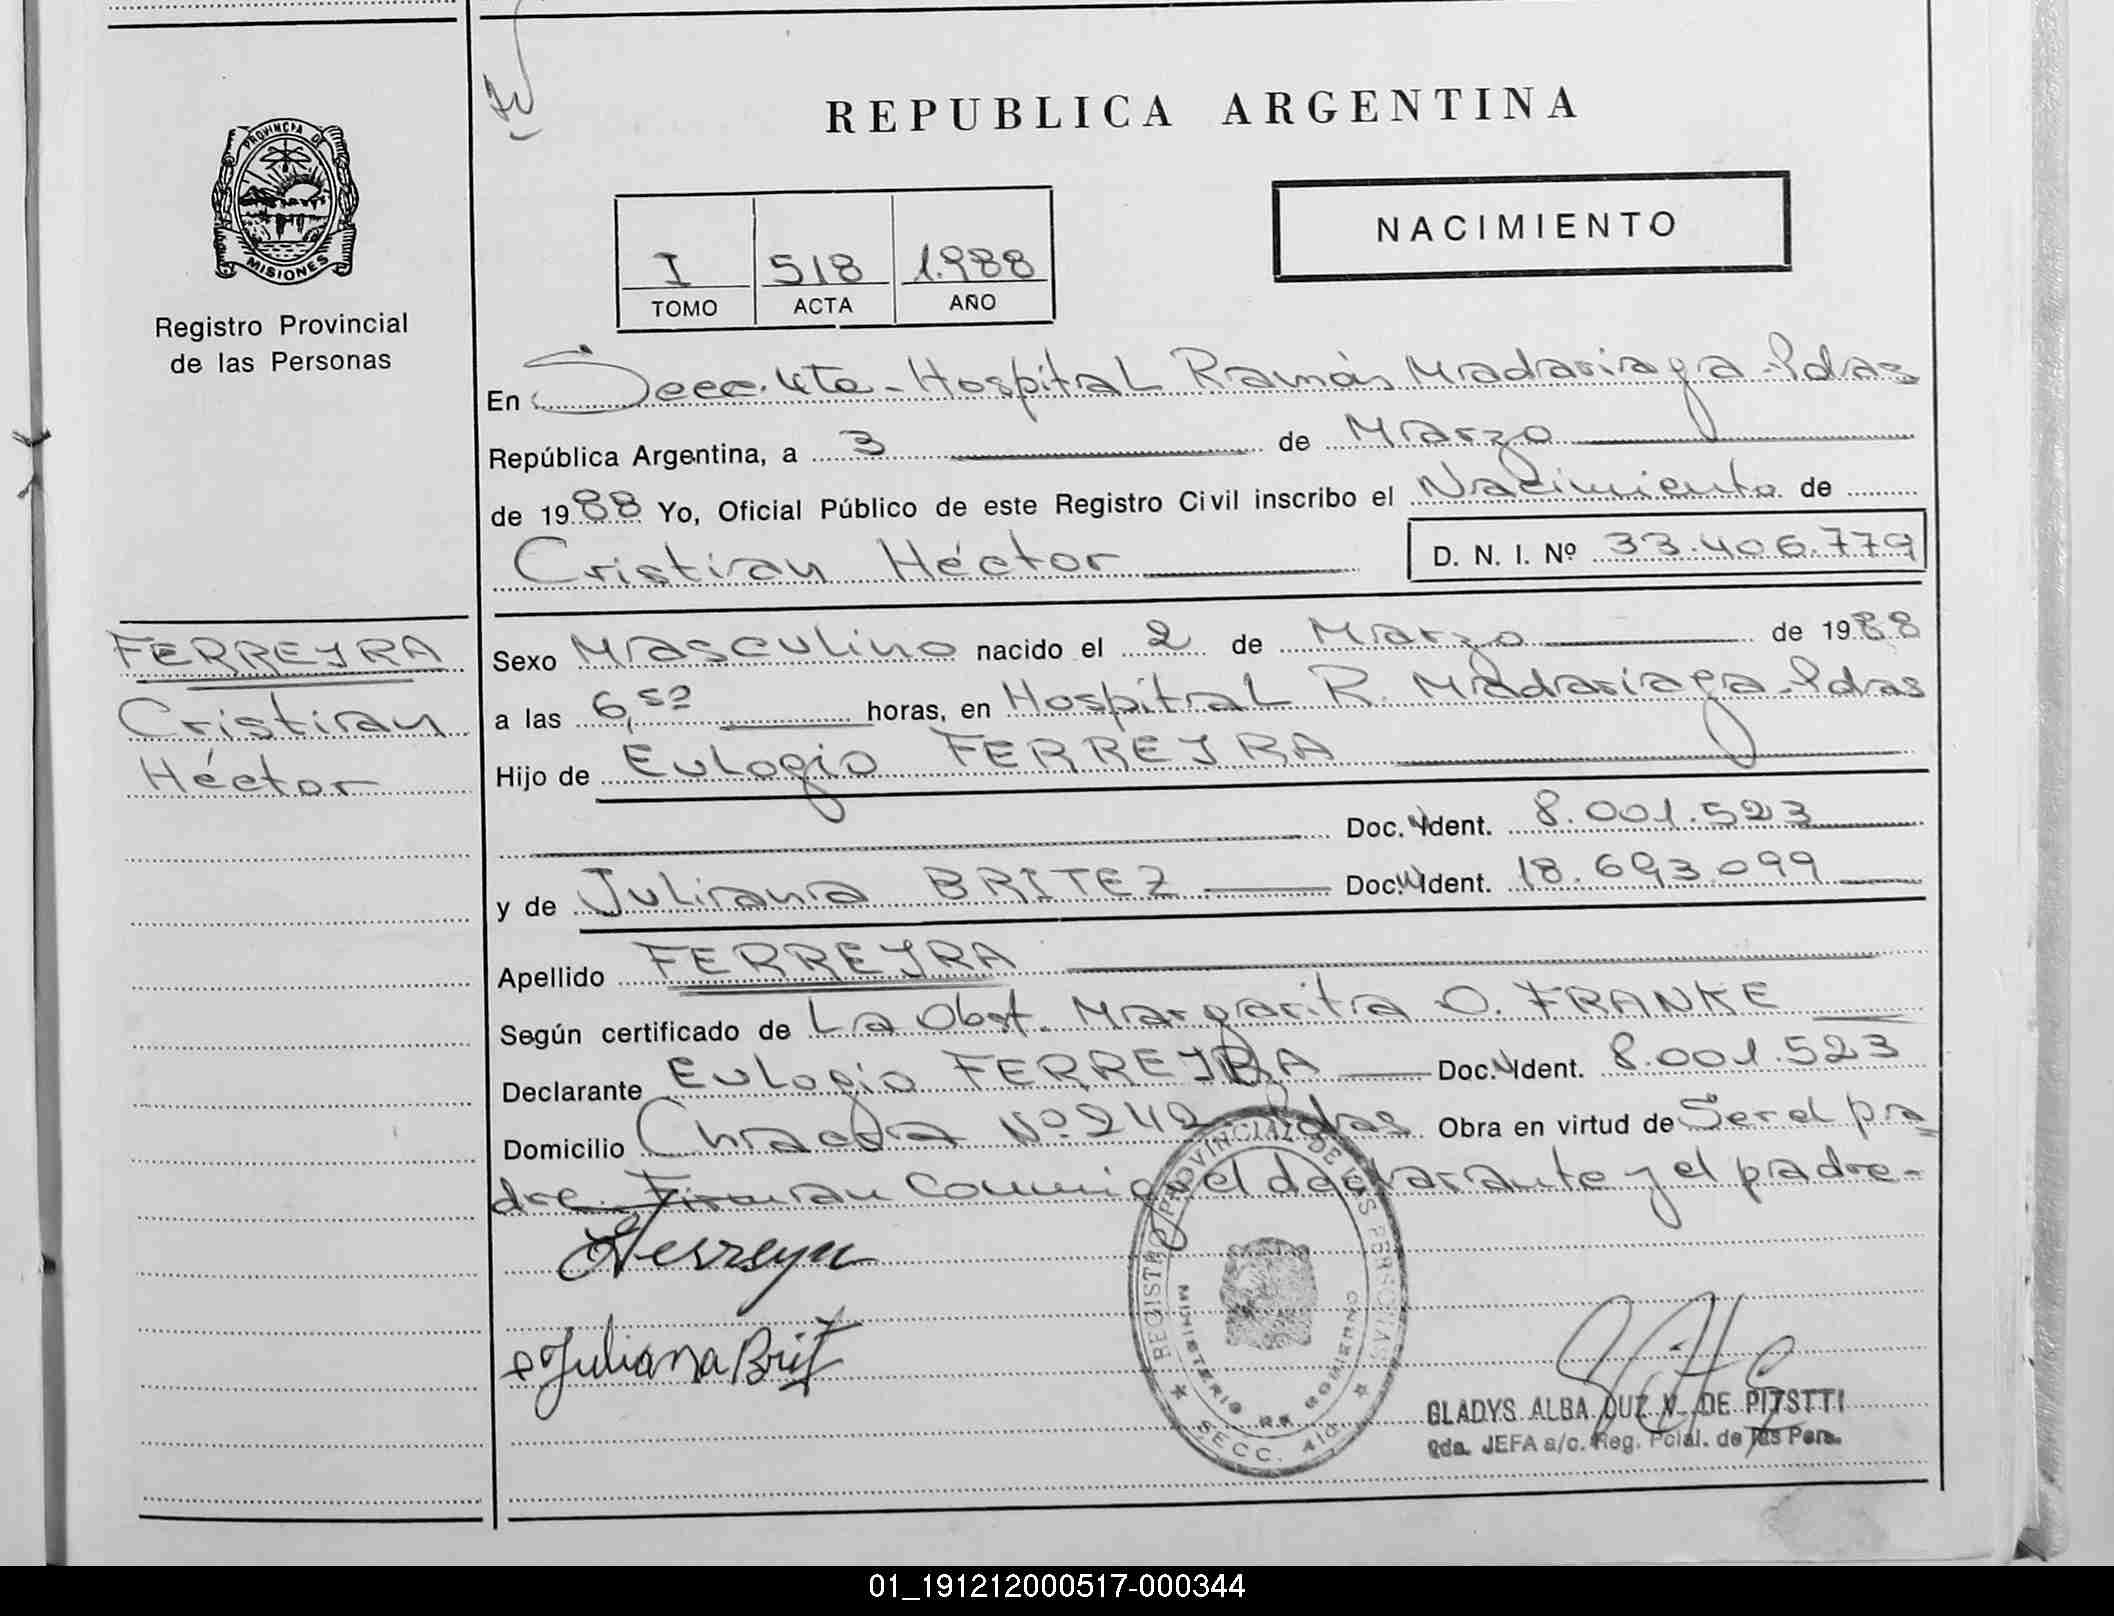 REPUBLICA ARGENTINA
PROVINCIA DE
MISIONES
Registro Provincial
de las Personas
NACIMIENTO
I 518 1.988
TOMO ACTA AÑO
En Secc. 4ta - Hospital Ramón Madariaga - Pdas
República Argentina, a 3 de Marzo
de 1988 Yo, Oficial Público de este Registro Civil inscribo el Nacimiento de
Cristian Héctor D. N. I. Nº 33.406.779
FERREYRA
Cristian
Héctor
Sexo Masculino nacido el 2 de Marzo de 1988
a las 6,50 horas, en Hospital R. Madariaga - Pdas
Hijo de Eulogio FERREYRA
Doc. Ident. 8.001.523
y de Juliana BRITEZ Doc. Ident. 18.693.099
Apellido FERREYRA
Según certificado de La Obst. Margarita O. FRANKE
Declarante Eulogio FERREYRA Doc. Ident. 8.001.523
Domicilio Chacra Nº 242 Pdas Obra en virtud de Ser el pa
dre. Firman conmigo el declarante y el padre-
Ferreyra
Juliana Brit
REGISTRO PROVINCIAL DE LAS PERSONAS
MINISTERIO DE GOBIERNO
SECC. 4ta.
GLADYS ALBA LUZ V. DE PITSTTI
JEFA a/c. Reg. Pcial. de las Pers.
01_191212000517-000344